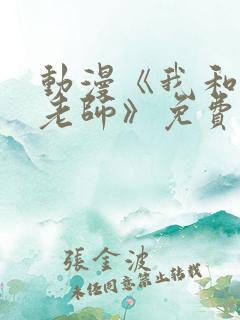 動漫《我和
老師》免費
張金波
未經同意禁止轉載